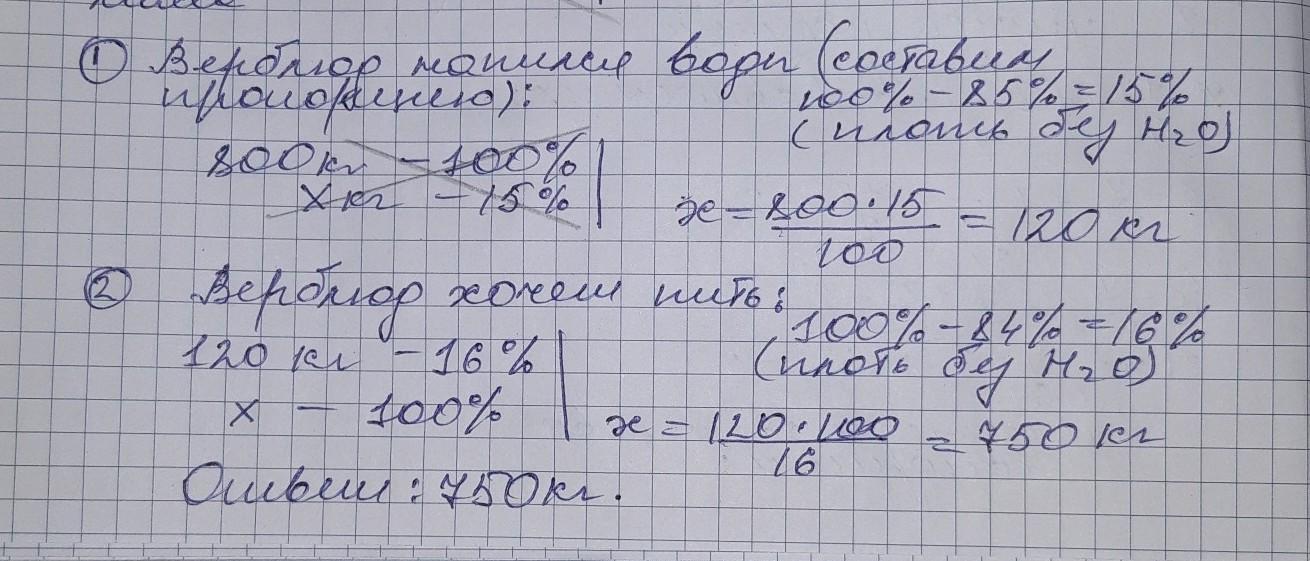 ① Верблюд напился воды (составим
пропорцию):
100% - 85% = 15%
(плоть без H₂O)
800кг - 100%
xкг - 15%
x = 800·15 / 100 = 120 кг
② Верблюд хочет пить:
100% - 84% = 16%
(плоть без H₂O)
120 кг - 16%
x - 100%
x = 120·100 / 16 = 750 кг
Ответ: 750кг.